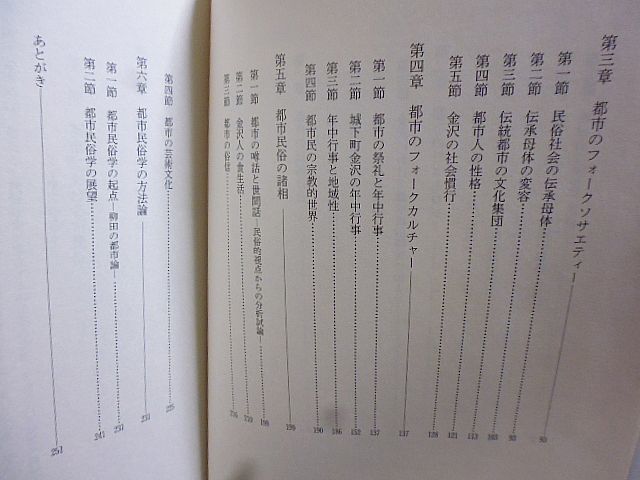 第三章　都市のフォークソサエティー
第一節　民俗社会の伝承母体 93
第二節　伝承母体の変容 93
第三節　伝統都市の文化集団 103
第四節　都市人の性格 113
第五節　金沢の社会慣行 121
第四章　都市のフォークカルチャー 137
第一節　都市の祭礼と年中行事 137
第二節　城下町金沢の年中行事 152
第三節　年中行事と地域性 186
第四節　都市民の宗教的世界 190
第五章　都市民俗の諸相 199
第一節　都市の噂話と世間話―民俗的視点からの分析試論 199
第二節　金沢人の食生活
第三節　都市の俗信
第四節　都市の芸術文化
第六章　都市民俗学の方法論 231
第一節　都市民俗学の起点―柳田の都市論 231
第二節　都市民俗学の展望 241
あとがき 251